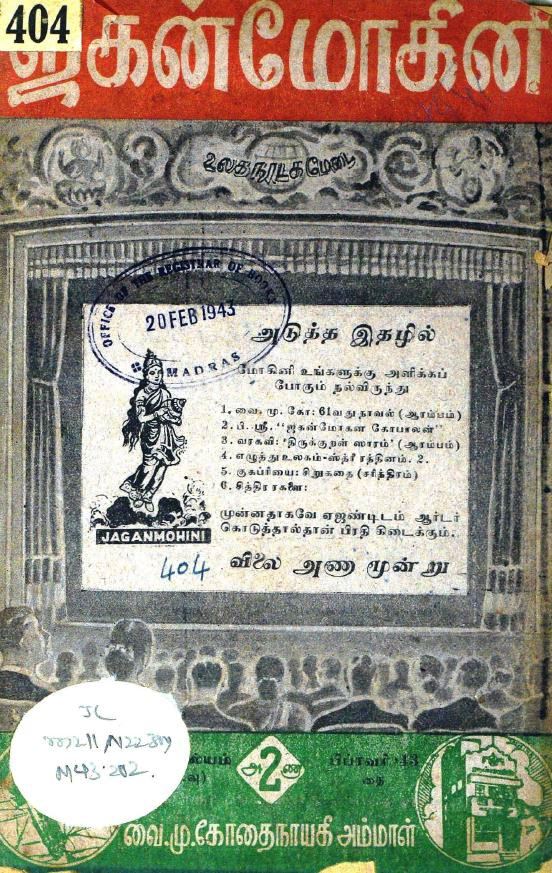 404
ஜகன்மோகினி
உலகநாடகமேடை
OFFICE OF THE REGISTRAR OF BOOKS
20 FEB 1943
MADRAS
அடுத்த இதழில்
மோகினி உங்களுக்கு அளிக்கப்
போகும் நல்விருந்து
1. வை. மு. கோ: 61வது நாவல் (ஆரம்பம்)
2. பி. ஸ்ரீ. "ஜகன்மோகன கோபாலன்"
3. வரகவி: 'திருக்குறள் ஸாரம்' (ஆரம்பம்)
4. எழுத்து உலகம்-ஸ்த்ரீ ரத்தினம். 2.
5. குகப்ரியை: சிறுகதை (சரித்திரம்)
6. சித்திர ரகளை:
முன்னதாகவே ஏஜண்டிடம் ஆர்டர்
கொடுத்தால்தான் பிரதி கிடைக்கும்.
JAGANMOHINI
404
விலை அணா மூன்று
JL
M43.202.
அ 2 ண
பிப்ரவரி '43
தை
வை.மு.கோதைநாயகி அம்மாள்